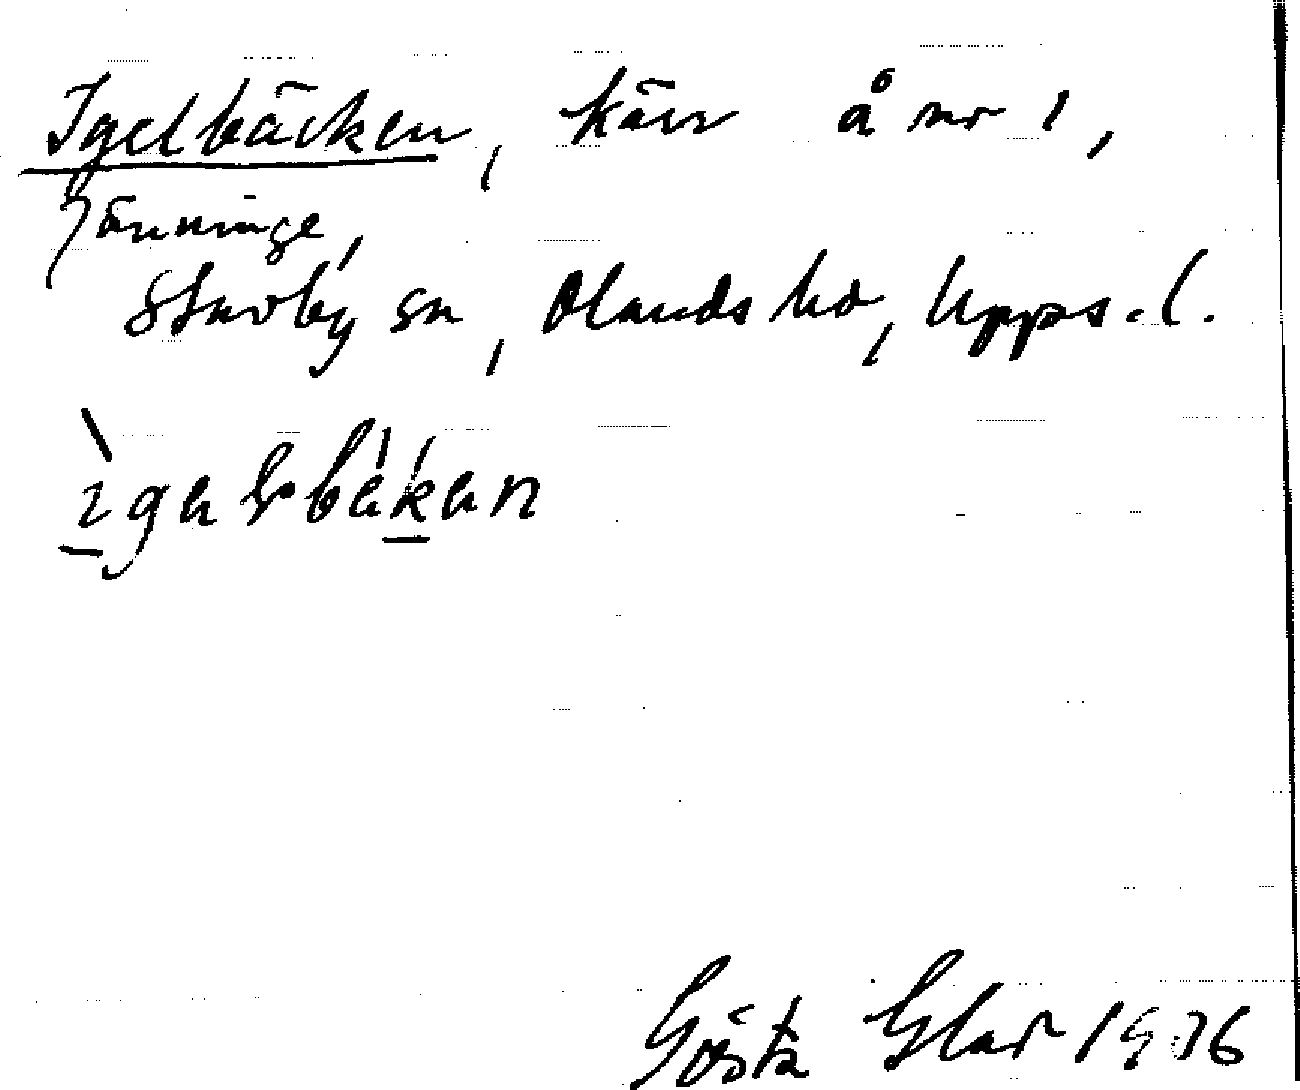 Igelbäcken, kärr å nr 1,
Jönninge,
Skuvby sn, Olands hd, Upps. l.
ìgelbekan
Gösta Glar 1936